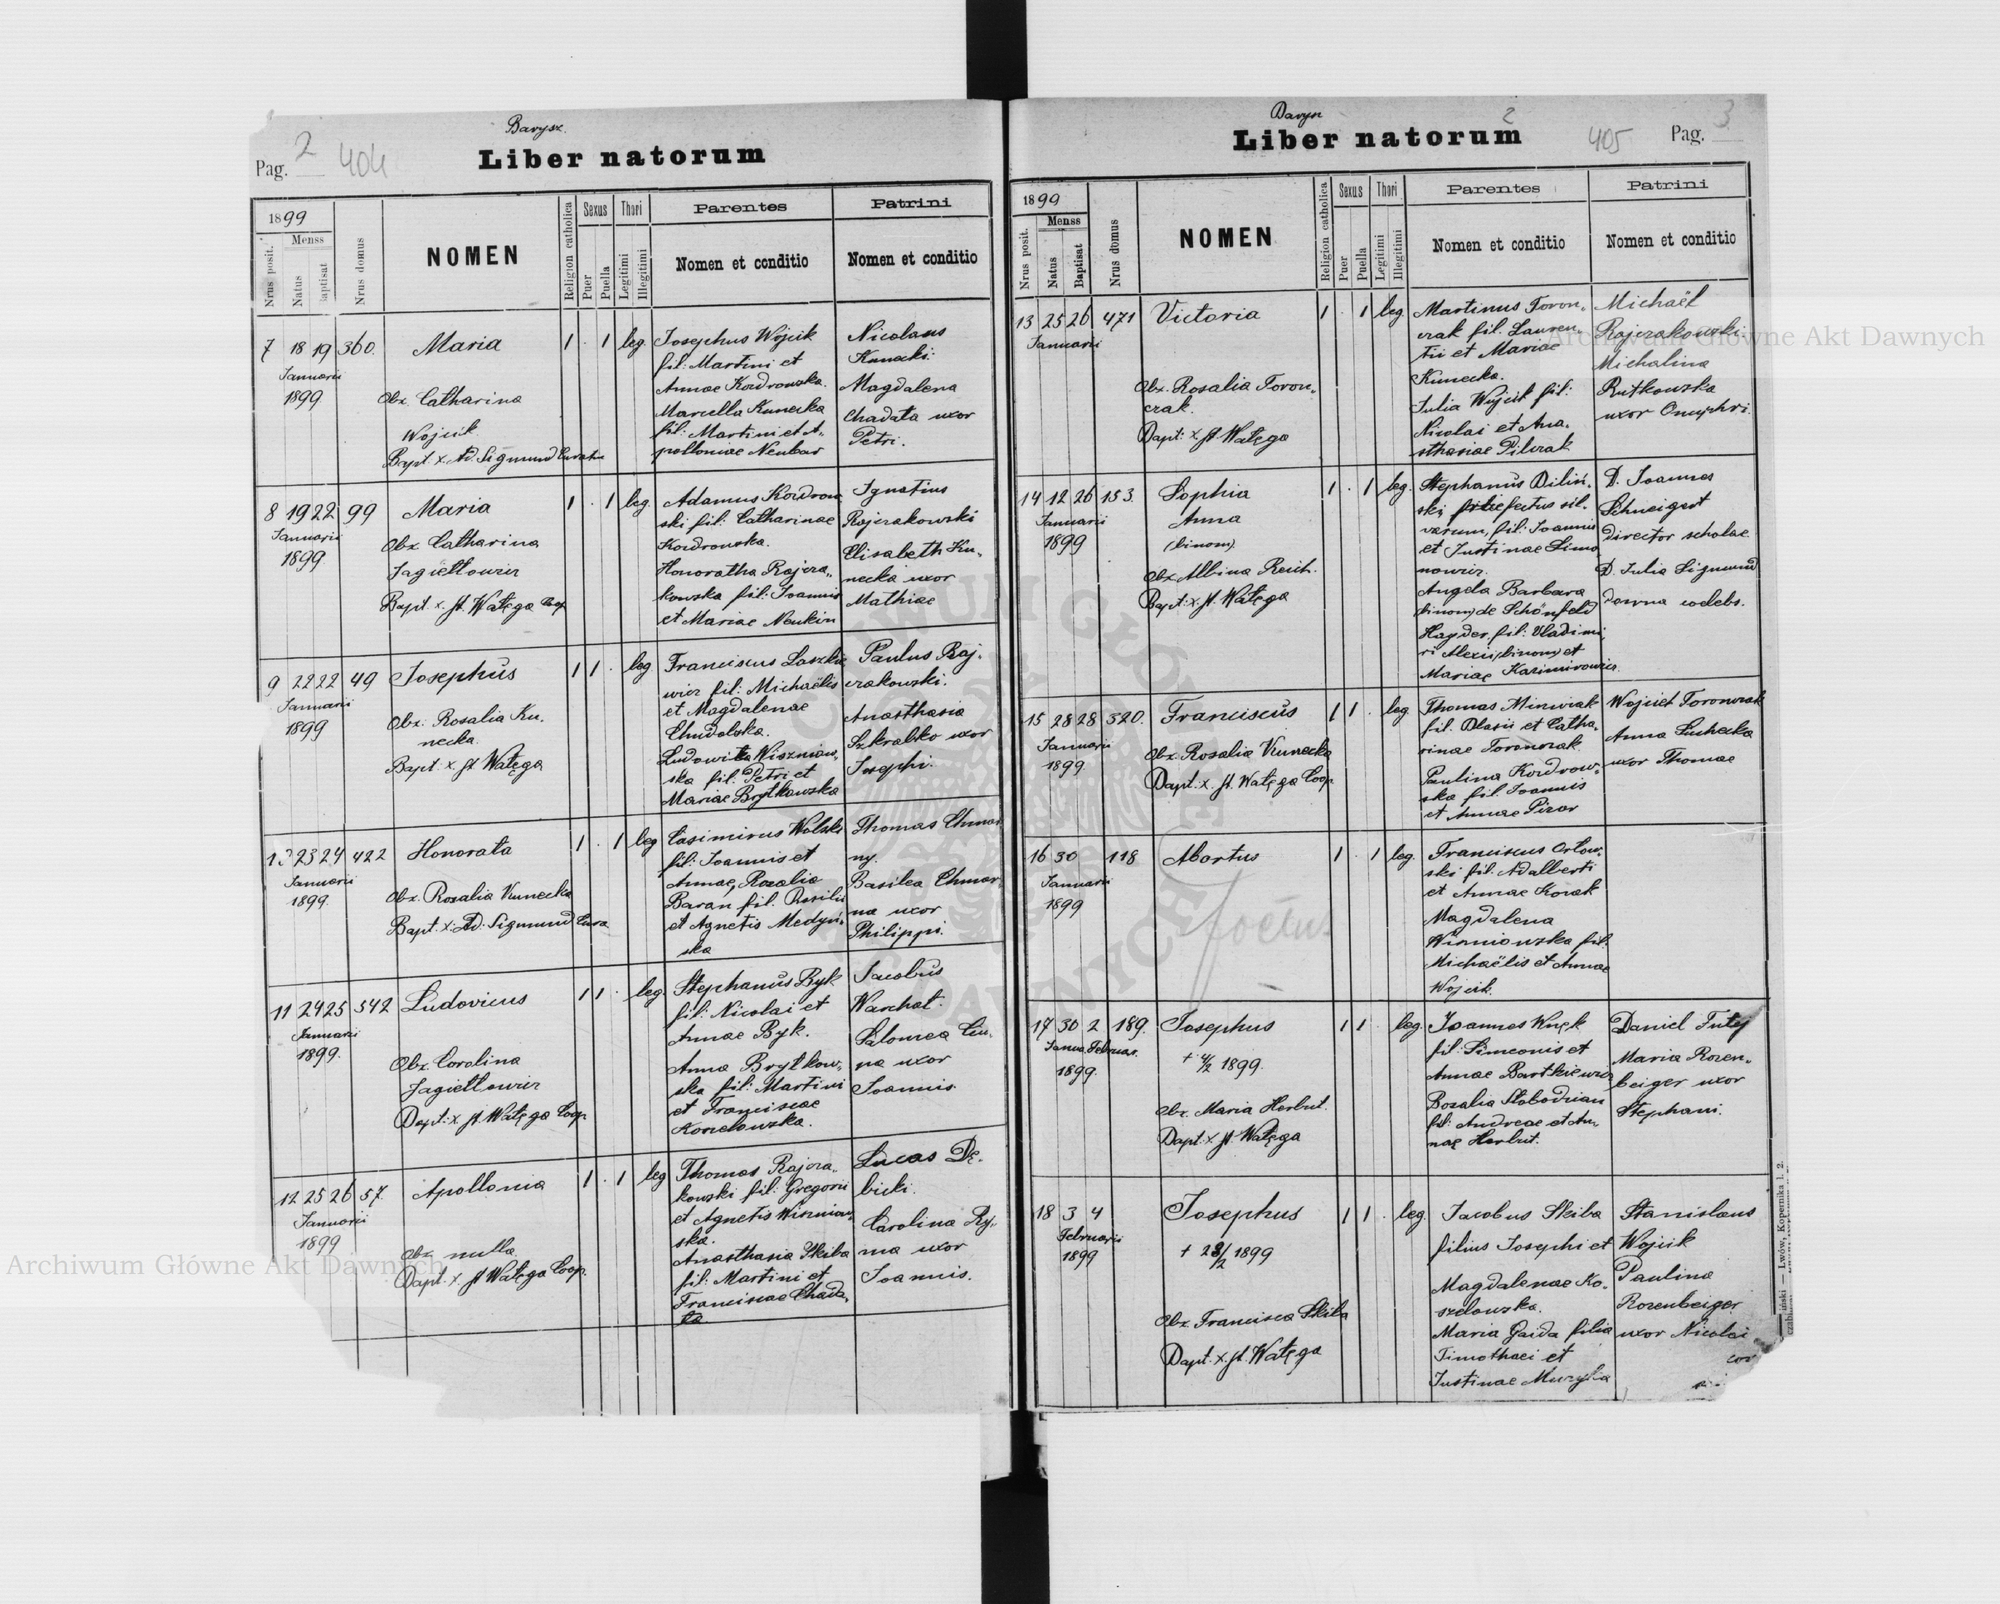 Barysz.
Pag. 2 404
Liber natorum
1899
Menss
Nrus posit.
Natus
Baptisat
Nrus domus
NOMEN
Religion catholica
Sexus
Puer
Puella
Thori
Legitimi
Illegitimi
Parentes
Nomen et conditio
Patrini
Nomen et conditio
7 18 19 360.
Januarii
1899
Maria
Obx. Catharina
Wojcik
Bapt. x. Ad. Sigmund Curatus
1 . 1 leg.
Josephus Wojcik
fil: Martini et
Annae Kordrowska.
Marcella Kunecka
fil: Martini et A-
polloniae Neubar
Nicolaus
Kunecki.
Magdalena
Chadata uxor
Petri.
8 19 22 99
Januarii
1899.
Maria
Obx Catharina
Jagiellowicz
Bapt. x. St. Watęga Coop
1 . 1 leg.
Adamus Kordrow
ski fil: Catharinae
Kordrowska.
Honoratha Rajcza-
kowska fil: Joannis
et Mariae Neukirn
Ignatius
Rajczakowski
Elisabeth Ku-
necka uxor
Mathiae
9 22 22 49
Januarii
1899
Josephus
Obx. Rosalia Ku-
necka.
Bapt. x. St Watęga
1 1 . leg.
Franciscus Laszkie
wicz fil: Michaëlis
et Magdalenae
Chudolska.
Ludowika Wiszniow-
ska fil. Petri et
Mariae Brytkowska
Paulus Raj-
czakowski.
Anasthasia
Szkrabko uxor
Josephi.
23 24 422
Januarii
1899.
Honorata
Obx. Rosalia Kunecka
Bapt. x. Ad. Sigmund Cura
1 . 1 leg
Casimirus Wolski
fil: Joannis et
Annae, Rosalia
Baran fil. Basilii
et Agnetis Medyn-
ska
Thomas Chmar
ny.
Basilea Chmar-
na uxor
Philippi.
11 24 25 542
Januarii
1899.
Ludovicus
Obx. Carolina
Jagiellowicz
Bapt. x. St. Watęga Coop.
1 1 . leg.
Stephanus Byk
fil: Nicolai et
Annae Byk.
Anna Brytkow-
ska fil: Martini
et Franciscae
Korzelowska.
Jacobus
Warchat.
Salomea Ciu-
pa uxor
Joannis.
12 25 26 57.
Januarii
1899
Apollonia
Obx nulla.
Bapt. x. St Watęga Coop.
1 . 1 leg
Thomas Rajcza-
kowski fil: Gregorii
et Agnetis Wiszniow-
ska.
Anasthasia Skiba
fil: Martini et
Franciscae Chada-
ta
Lucas Dę-
bicki.
Carolina Ry-
ma uxor
Joannis.
Barysz
2
Liber natorum
405 Pag. 3
1899
Menss
Nrus posit.
Natus
Baptisat
Nrus domus
NOMEN
Religion catholica
Sexus
Puer
Puella
Thori
Legitimi
Illegitimi
Parentes
Nomen et conditio
Patrini
Nomen et conditio
13 25 26 471
Januarii
Victoria
Obx. Rosalia Toron-
czak.
Bapt: x St. Watęga
1 . 1 leg
Martinus Toron-
czak fil. Lauren-
tii et Mariae
Kunecka.
Julia Wojcik fil:
Nicolai et Ana-
sthasiae Pilczak
Michaël
Rajczakowski.
Michalina
Rutkowska
uxor Onuphri.
14 12 26 153
Januarii
1899
Sophia
Anna
(binom)
Obx Albina Reich.
Bapt: x St. Watęga
1 . 1 leg.
Stephanus Biliń-
ski praefectus sil-
varum, fil: Joannis
et Justinae Simo
nowicz.
Angela Barbara
(binom) de Schönfeld
Hayder, fil: Vladimi
ri Alexii (binom) et
Mariae Kazimirowicz.
D. Joannes
Schneigert
director scholae
D. Julia Sigmund
coelebs.
15 28 28 320.
Januarii
1899.
Franciscus
Obx. Rosalia Kunecka
Bapt: x. St. Watęga Coop.
1 1 . leg
Thomas Minwiak
fil. Blasii et Catha-
rinae Toronczak.
Paulina Kordrow-
ska fil Joannis
et Annae Pizar
Wojciech Toronczak
Anna Suchecka
uxor Thomae
16 30 118
Januarii
1899
Abortus
foetus
1 . 1 leg.
Franciscus Orłow-
ski fil. Adalberti
et Annae Kozak
Magdalena
Wisniowska fil.
Michaëlis et Annae
Wojcik.
17 30 2 189.
Janua. Februar.
1899.
Josephus
+ 4/2 1899.
Obx. Maria Herbut.
Bapt: x St. Watęga
1 1 . leg.
Joannes Kuęk
fil: Simeonis et
Annae Bartkiewicz
Rosalia Slobodzian
fil: Andreae et An-
nae Herbut.
Daniel Tutej
Maria Rozen-
beiger uxor
Stephani.
18 3 4
Februarii
1899
Josephus
+ 28/2 1899
Obx. Francisca Skiba
Bapt. x. St. Watęga
1 1 . leg.
Jacobus Skiba
filius Josephi et
Magdalenae Ko-
szelowska.
Maria Gaida filia
Timothaei et
Justinae Muzyka
Stanislaus
Wojcik
Paulina
Rozenbeiger
uxor Nicolai
Lwów, Kopernika l. 2.
Archiwum Główne Akt Dawnych
Archiwum Główne Akt Dawnych
ARCHIWUM GŁÓWNE AKT DAWNYCH